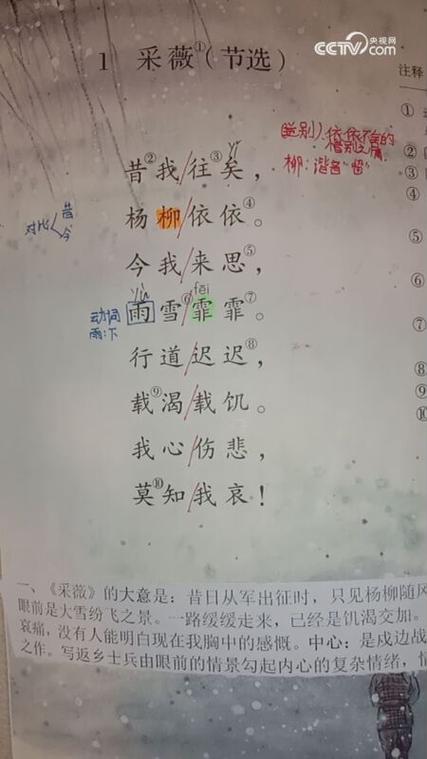 CCTV 央视网
com
1 采薇①（节选）
注释
(送别) 依依不舍的
惜别之情
柳：谐音“留”
yǐ
昔②我/往③矣，
杨柳/依依④。
对比 昔
今
今我/来思⑤，
yù fēi
雨雪⑥/霏霏⑦。
动词
雨：下
行道/迟迟⑧，
载⑨渴/载饥。
我心/伤悲，
莫⑩知/我哀！
①
②
③
④
⑤
⑥
⑦
⑧
⑨
⑩
一、《采薇》的大意是：昔日从军出征时，只见杨柳随风
眼前是大雪纷飞之景。一路缓缓走来，已经是饥渴交加。
哀痛，没有人能明白现在我胸中的感慨。中心：是戍边战
之作。写返乡士兵由眼前的情景勾起内心的复杂情绪，